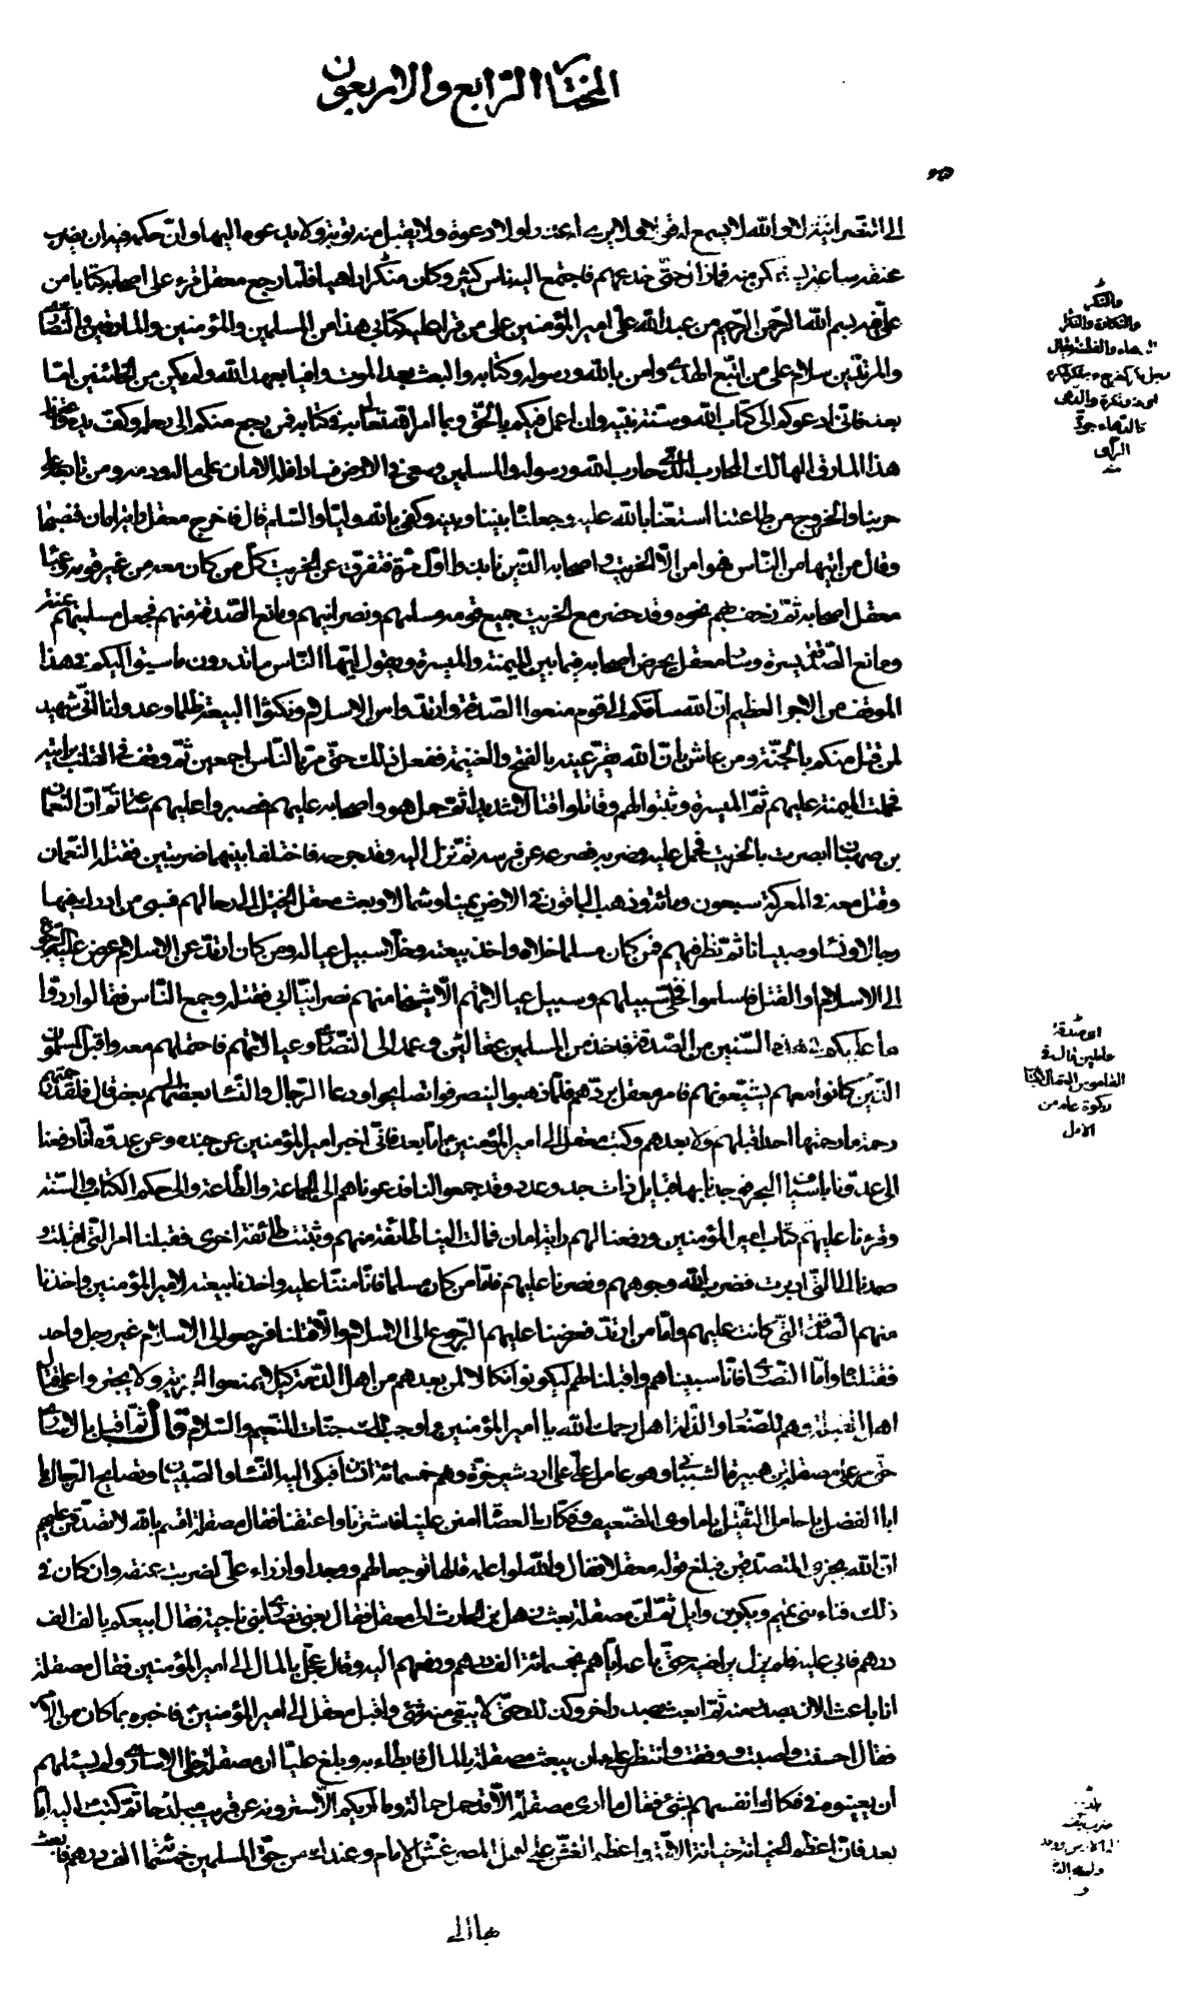 المختار الرابع والاربعون
الى ان تقصر انيته لا والله لا يسمع له قولا ولا يرى له عذرا ولا دعوة ولا يقبل منه توبة ولا يدعوه اليها وان حكمه فيه ان يضرب
عنقه ساعة يستمكن منه فما زال حتى خدعهم فاجتمع اليه ناس كثير وكان منكرا داهيا فلما رجع معقل قرء على اصحابه كتابا من
على فيه بسم الله الرحمن الرحيم من عبد الله على امير المؤمنين على من قرا عليه كتابي هذا من المسلمين والمؤمنين والمارقين والنصارى
والمرتدين سلام على من اتبع الهدى وامن بالله ورسوله وكتابه والبعث بعد الموت وافيا بعهد الله ولم يكن من الخائنين اما
بعد فاني ادعوكم الى كتاب الله وسنة نبيه وان اعمل فيكم بالحق وبما امر الله تعالى به في كتابه فمن رجع منكم الى رحله وكف يده واعتزل
هذا المارق الهالك المحارب الذي حارب الله ورسوله والمسلمين وسعى في الارض فسادا فله الامان على ماله ودمه ومن تابعه على
حربنا والخروج من طاعتنا استعنا بالله عليه وجعلناه بيننا وبينه وكفى بالله وليا والسلم قال فاخرج معقل راية امان فنصبها
وقال من اتيها من الناس فهو امن الا الخريت واصحابه الذين نابذوا اول مرة فتفرق عن الخريت كل من كان معه من غير قومه وعبأ
معقل اصحابه ثم زحف بهم نحوه وقد حضر مع الخريت جميع قومه مسلمهم ونصرانيهم ومانع الصدقة منهم فجعل مسلميهم يمنة
ومانع الصدقة يسرة وسار معقل يحرض اصحابه فيما بين الميمنة والميسرة ويقول ايها الناس ما تدرون ما سيق اليكم في هذا
الموقف من الاجر العظيم ان الله ساقكم الى قوم منعوا الصدقة وارتدوا عن الاسلام ونكثوا البيعة ظلما وعدوانا اني شهيد
لمن قتل منكم بالجنة ومن عاش بان الله يقر عينه بالفتح والغنيمة ففعل ذلك حتى مر بالناس اجمعين ثم وقف في القلب برايته
فحملت الميمنة عليهم ثم الميسرة وثبتوا لهم وقاتلوا قتالا شديدا ثم حمل هو واصحابه عليهم فصبروا عليهم ساعة ثم ان النعمان
بن صهبان ابصرت بالخريت فحمل عليه وضربه فصرعه عن فرسه ثم نزل اليه وقد جرحه فاختلفا بينهما ضربتين فقتله النعمان
وقتل معه في المعركة سبعون ومائة وذهب الباقون في الارض يمينا وشمالا وبعث معقل الخيل الى رحالهم فسبى من ادرك فيها
رجالا ونساء وصبيانا ثم نظر فيهم فمن كان مسلما خلاه واخذ بيعته وخلا سبيل عياله ومن كان ارتد عن الاسلام عرض عليه الرجوع
الى الاسلام او القتل فاسلموا فخلى سبيلهم وسبيل عيالاتهم الا شيخا منهم نصرانيا ابى فقتله وجمع الناس فقالوا ردوا
ما عليكم في هذه السنين من الصدقة فاخذ من المسلمين عقالين وعمد الى النصارى وعيالاتهم فاحتملهم معه واقبل المسلمون
الذين كانوا معهم يشيعونهم فامر معقل بردهم فلما ذهبوا لينصرفوا تصايحوا ودعا الرجال والنساء بعضهم الى بعض قال فلقد رحمتهم
رحمة ما رحمتها احدا قبلهم ولا بعدهم وكتب معقل الى امير المؤمنين اما بعد فاني اخبر امير المؤمنين عن جنده وعن عدوه انا دفعنا
الى عدونا باسياف البحر فوجدنا بها قبايل ذات حد وعدد وقد جمعوا لنا فدعوناهم الى الجماعة والطاعة والى حكم الكتاب والسنة
وقرءنا عليهم كتاب امير المؤمنين ورفعنا لهم راية امان فمالت الينا طائفة منهم وثبتت طائفة اخرى فقبلنا امر التي اقبلت و
صمدنا الى التي ادبرت فضرب الله وجوههم ونصرنا عليهم فاما من كان مسلما فانا مننا عليه واخذنا بيعته لامير المؤمنين واخذنا
منهم الصدقة التي كانت عليهم واما من ارتد فعرضنا عليهم الرجوع الى الاسلام والا قتلنا فرجعوا الى الاسلام غير رجل واحد
فقتلناه واما النصارى فانا سبيناهم واقبلنا بهم ليكونوا نكالا لمن بعدهم من اهل الذمة كيلا يمنعوا الجزية ولا يجترءوا على قتال
اهل القبلة وهم للصغار والذلة اهل رحمك الله يا امير المؤمنين واوجب لك جنات النعيم والسلام قال ثم اقبل بالاسارى
حتى مر على مصقلة بن هبيرة الشيباني وهو عامل على على اردشير خرة وهم خمسمائة انسان فبكى اليه النساء والصبيان وتصايح الرجال يا
ابا الفضل يا حامل الثقيل يا ماوى الضعيف وفكاك العصاة امنن علينا فاشترنا واعتقنا فقال مصقلة اقسم بالله لا تصدقن عليهم
ان الله يجزى المتصدقين فبلغ قوله معقلا فقال والله لو اعلمه قالها توجعا لهم ووجدا وازراء على لضربت عنقه وان كان في
ذلك فناء بني تميم وبكر بن وايل ثم ان مصقلة بعث ذهل بن الحارث الى معقل فقال بعني نصارى بني ناجية فقال ابيعكم بالف الف
درهم فابى عليه فلم يزل يراضيه حتى باعه اياهم بخمسمائة الف درهم ودفعهم اليه وقال عجل بالمال الى امير المؤمنين فقال مصقلة
انا باعث الان بصدر منه ثم ابعث بصدر اخر وكذلك حتى لا يبقى منه شئ واقبل معقل الى امير المؤمنين فاخبره بما كان من الامر
فقال احسنت واصبت ووفقت وانتظر على ان يبعث مصقلة بالمال فابطاء به وبلغ عليا ان مصقلة خلى الاسارى ولم يسئلهم
ان يعينوه في فكاك انفسهم بشئ فقال ما ارى مصقلة الا قد حمل حمالة وما اريكم الا سترونه عن قريب مبلدحا ثم كتب اليه اما
بعد فان اعظم الخيانة خيانة الامة واعظم الغش على اهل المصر غش الامام وعندك من حق المسلمين خمسمائة الف درهم فابعث
بها الى
والنكر
والنكارة والنكراء
الدهاء والفطنة يقال
الدهاء جودة
الراى
منه
اى صدقة
عامين قال في
القاموس العقال ككتاب
زكوة عام من
الابل